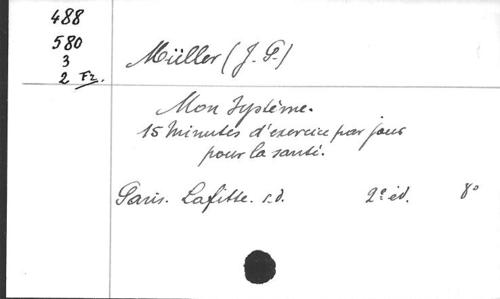 488
580
3
2 Fz.
Müller (J. P.)
Mon Système.
15 Minutes d'exercice par jour
pour la santé.
Paris. Lafitte. s.d. 2e éd. 8°